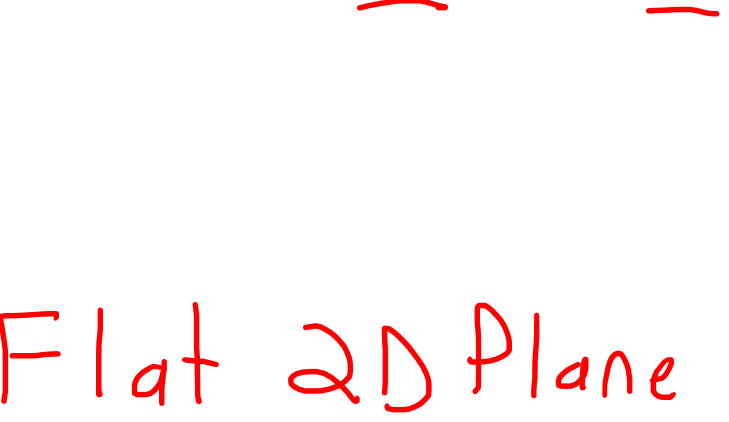 Flat 2D Plane